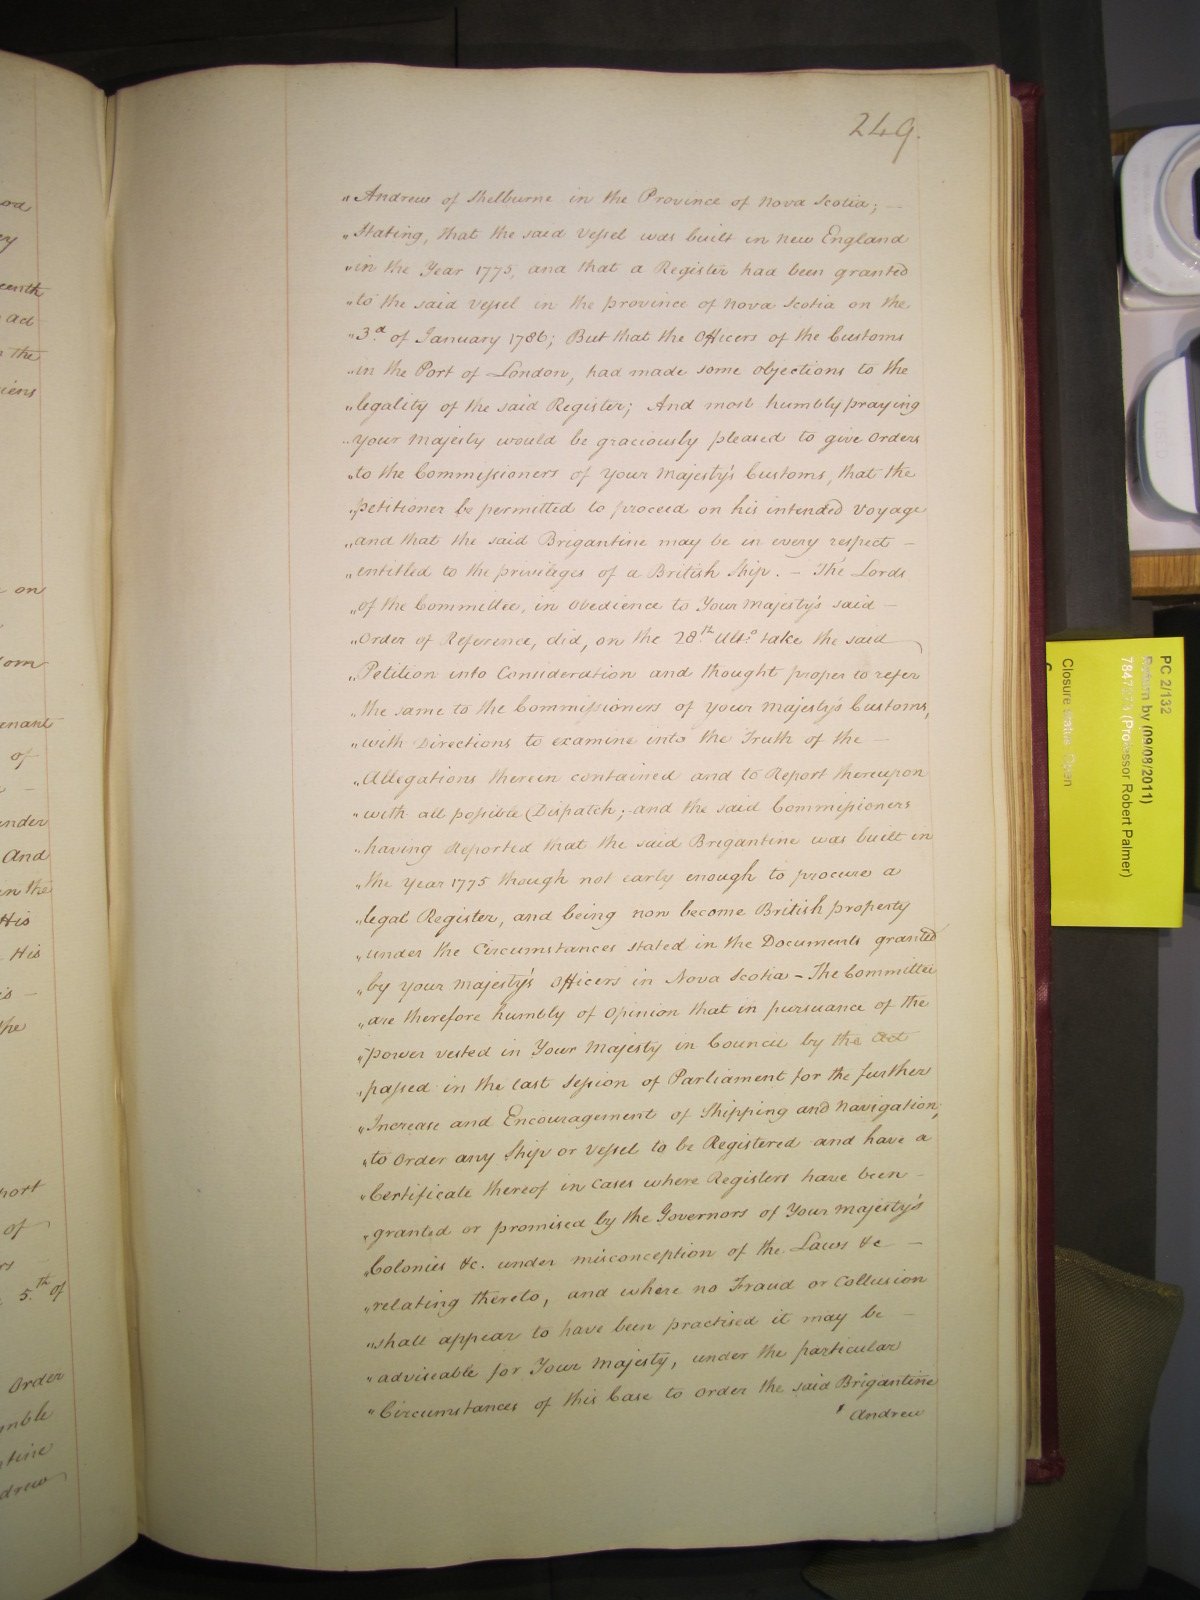 249.
"Andrew of Shelburne in the Province of Nova Scotia; —
"Stating, that the said Vessel was built in New England
"in the Year 1775, and that a Register had been granted
"to the said Vessel in the province of Nova Scotia on the
"3.d of January 1786; But that the Officers of the Customs
"in the Port of London, had made some objections to the
"legality of the said Register; And most humbly praying
"your Majesty would be graciously pleased to give Orders
"to the Commissioners of Your Majesty's Customs, that the
"petitioner be permitted to proceed on his intended Voyage
"and that the said Brigantine may be in every respect —
"entitled to the privileges of a British Ship. — The Lords
"of the Committee, in Obedience to Your Majesty's said —
"Order of Reference, did, on the 28.th Ult.o take the said
"Petition into Consideration and thought proper to refer
"the same to the Commissioners of your Majesty's Customs,
"with Directions to examine into the Truth of the —
"Allegations therein contained and to Report thereupon
"with all possible Dispatch; and the said Commissioners
"having Reported that the said Brigantine was built in
"the Year 1775 though not early enough to procure a
"legal Register, and being now become British property
"under the Circumstances stated in the Documents granted
"by your Majesty's Officers in Nova Scotia – The Committee
"are therefore humbly of Opinion that in pursuance of the
"power vested in Your Majesty in Council by the Act
"passed in the last Session of Parliament for the further
"Increase and Encouragement of Shipping and Navigation,
"to Order any Ship or Vessel to be Registered and have a
"Certificate thereof in Cases where Registers have been —
"granted or promised by the Governors of Your Majesty's
"Colonies &c. under misconception of the Laws &c —
"relating thereto, and where no Fraud or Collusion
"shall appear to have been practised it may be —
"adviseable for Your Majesty, under the particular
"Circumstances of this Case to order the said Brigantine
"Andrew
on
of
And
in the
His
His
the
of
5.th of
Order
PC 2/132
Return by (09/08/2011)
(Professor Robert Palmer)
Closure status: Open